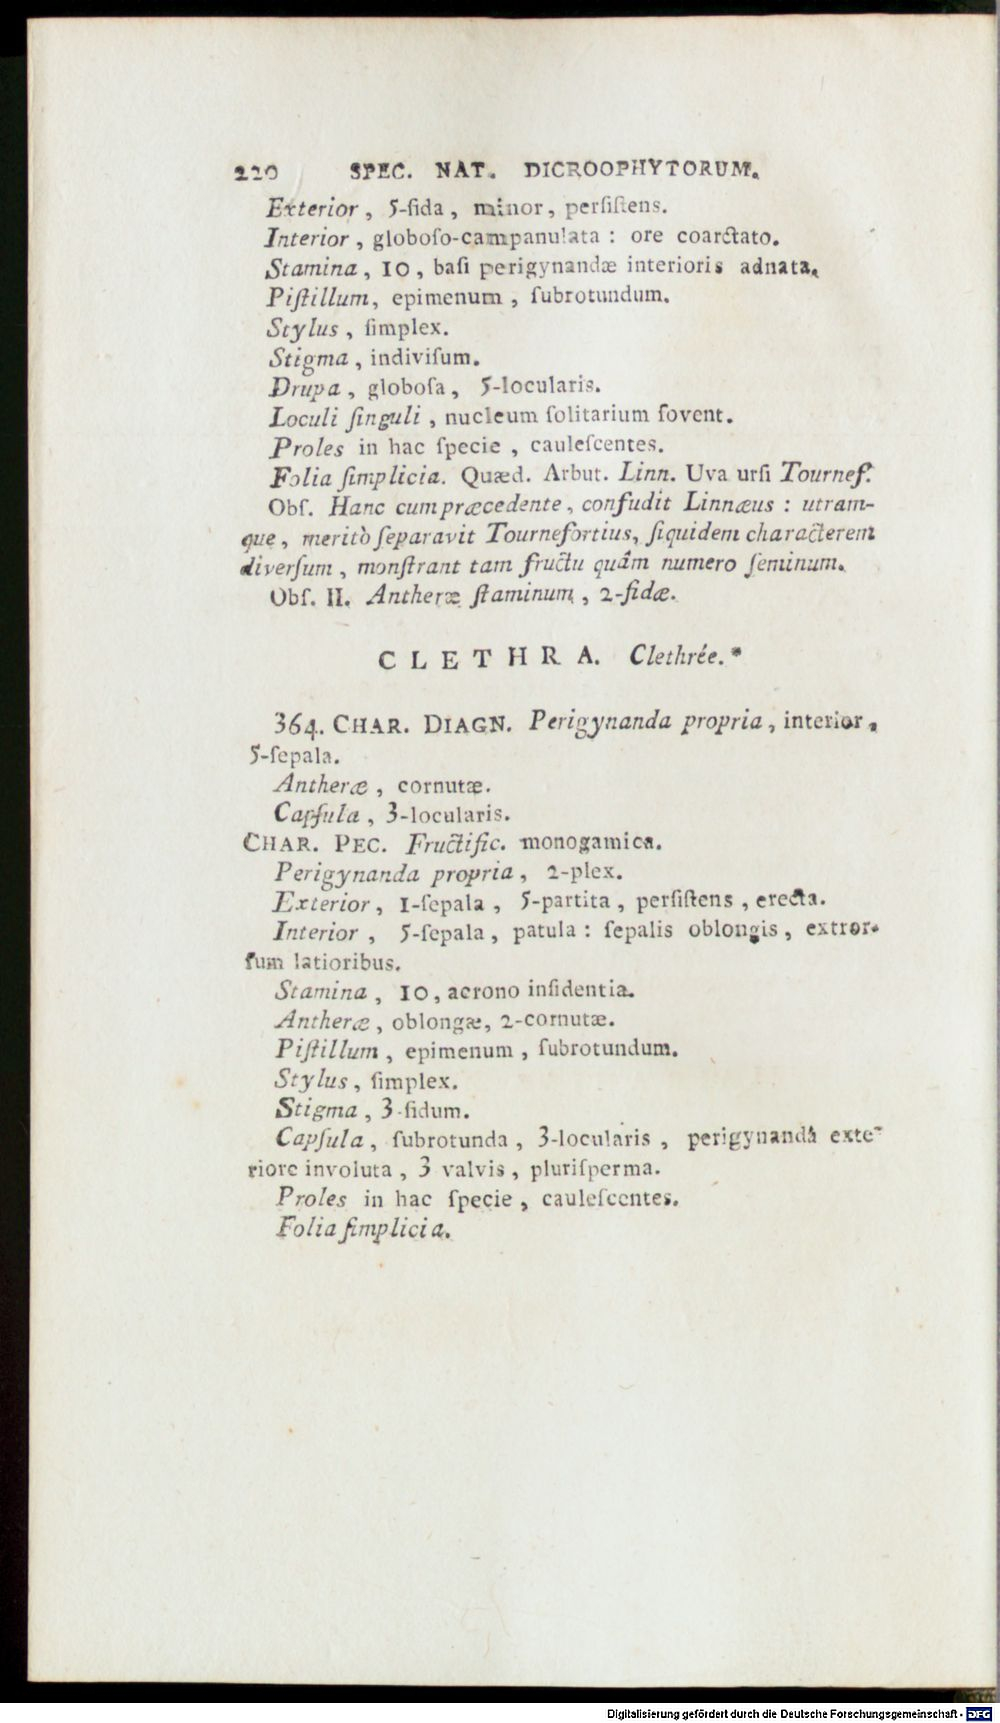 220 SPEC. NAT. DICROOPHYTORUM.
Exterior, 5-fida, minor, perſiſtens.
Interior, globoſo-campanulata : ore coarctato.
Stamina, 10, baſi perigynandæ interioris adnata.
Piſtillum, epimenum, ſubrotundum.
Stylus, ſimplex.
Stigma, indiviſum.
Drupa, globoſa, 5-locularis.
Loculi ſinguli, nucleum ſolitarium fovent.
Proles in hac ſpecie, cauleſcentes.
Folia ſimplicia. Quæd. Arbut. Linn. Uva urſi Tournef.
Obſ. Hanc cum præcedente, confudit Linnæus : utram-
que, meritò ſeparavit Tournefortius, ſiquidem characterem
diverſum, monſtrant tam fructu quâm numero ſeminum.
Obſ. II. Antheræ ſtaminum, 2-fidæ.
CLETHRA. Clethrée.*
364. CHAR. DIAGN. Perigynanda propria, interior,
5-ſepala.
Antheræ, cornutæ.
Capſula, 3-locularis.
CHAR. PEC. Fructific. monogamica.
Perigynanda propria, 2-plex.
Exterior, 1-ſepala, 5-partita, perſiſtens, erecta.
Interior, 5-ſepala, patula : ſepalis oblongis, extror-
ſum latioribus.
Stamina, 10, acrono inſidentia.
Antheræ, oblongæ, 2-cornutæ.
Piſtillum, epimenum, ſubrotundum.
Stylus, ſimplex.
Stigma, 3-fidum.
Capſula, ſubrotunda, 3-locularis, perigynandâ exte-
riore involuta, 3 valvis, pluriſperma.
Proles in hac ſpecie, cauleſcentes.
Folia ſimplicia.
Digitalisierung gefördert durch die Deutsche Forschungsgemeinschaft - DFG